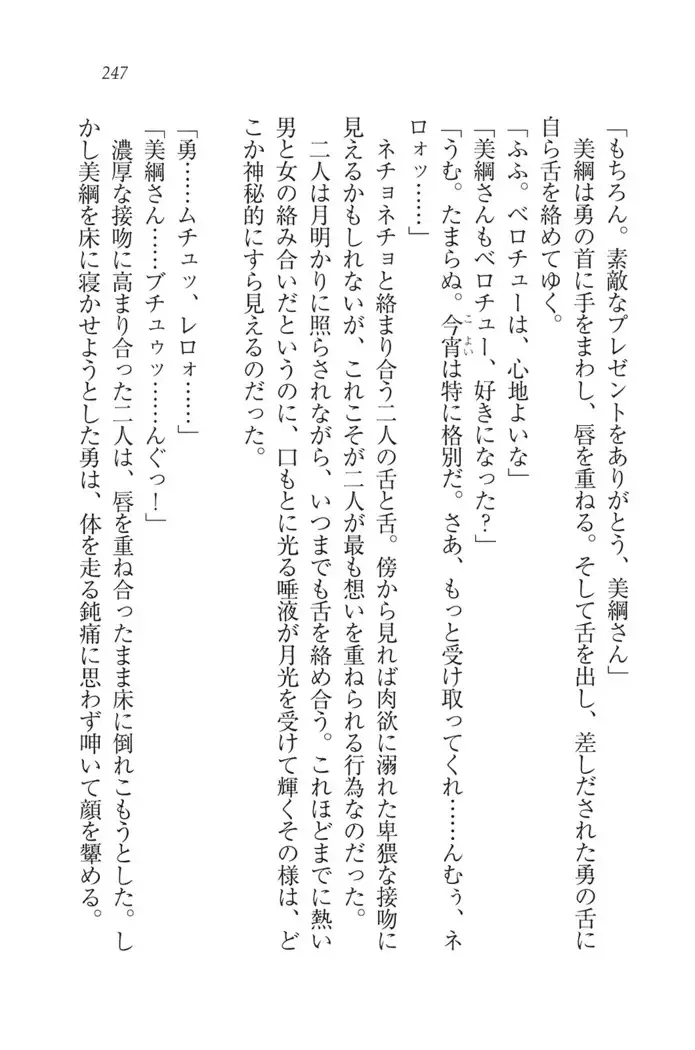 247
「もちろん。素敵なプレゼントをありがとう、美綱さん」
美綱は勇の首に手をまわし、唇を重ねる。そして舌を出し、差しだされた勇の舌に
自ら舌を絡めてゆく。
「ふふ。ベロチューは、心地よいな」
「美綱さんもベロチュー、好きになった?」
「うむ。たまらぬ。今宵は特に格別だ。さあ、もっと受け取ってくれ……んむぅ、ネ
こよい
ロォッ……」
ネチョネチョと絡まり合う二人の舌と舌。傍から見れば肉欲に溺れた卑猥な接吻に
見えるかもしれないが、これこそが二人が最も想いを重ねられる行為なのだった。
二人は月明かりに照らされながら、いつまでも舌を絡め合う。これほどまでに熱い
男と女の絡み合いだというのに、口もとに光る唾液が月光を受けて輝くその様は、ど
こか神秘的にすら見えるのだった。
「勇……ムチュッ、レロォ……」
「美綱さん……ブチュゥッ……んぐっ!」
濃厚な接吻に高まり合った二人は、唇を重ね合ったまま床に倒れこもうとした。し
かし美綱を床に寝かせようとした勇は、体を走る鈍痛に思わず呻いて顔を顰める。